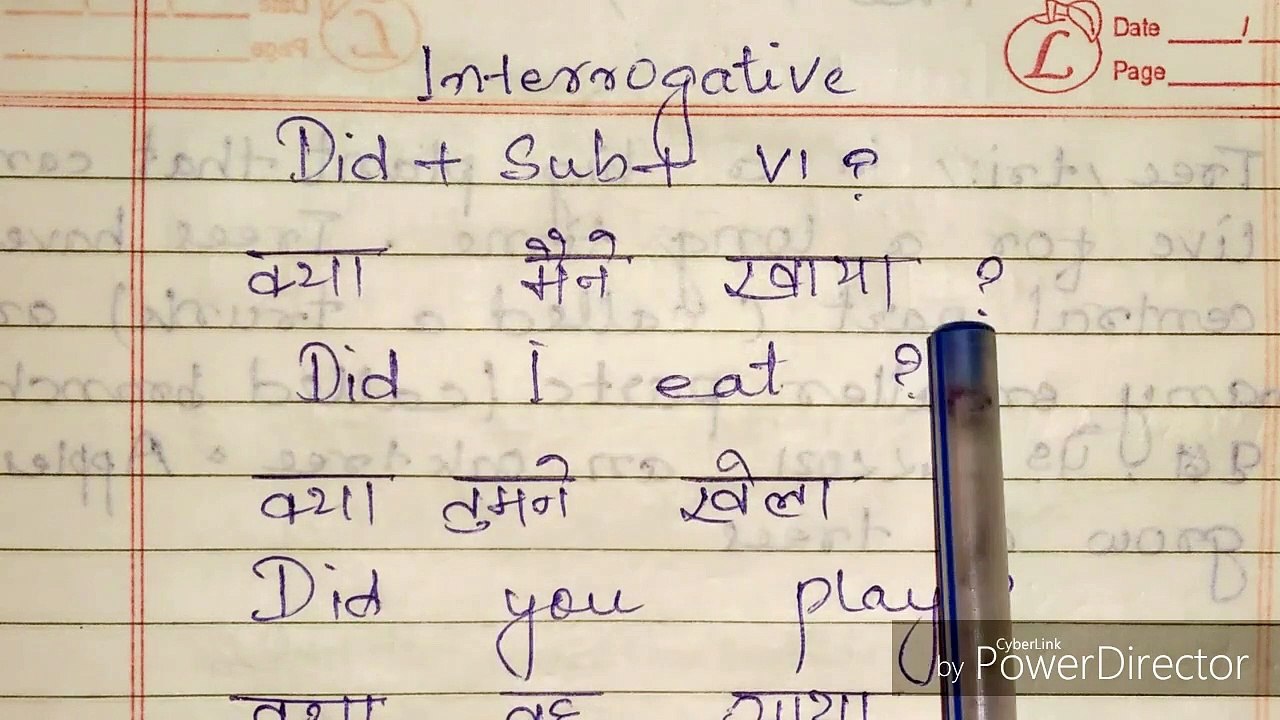 Date ___/
Page ___
Interrogative
Did + Sub + V1 ?
क्या मैने खाया ?
Did I eat ?
क्या तुमने खेला
Did you play ?
क्या वह
CyberLink
by PowerDirector